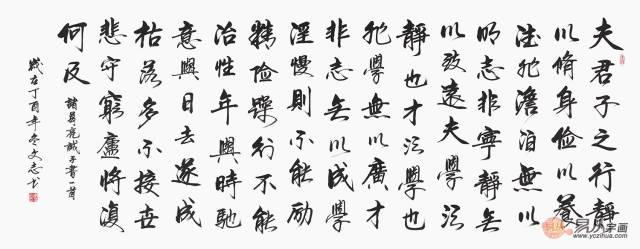 夫君子之行靜
以脩身儉以養
德非澹泊無以
明志非寧靜無
以致遠夫學須
靜也才須學也
非學無以廣才
非志無以成學
淫慢則不能勵
精險躁則不能
治性年與時馳
意與日去遂成
枯落多不接世
悲守窮廬將復
何及
諸葛亮誡子書一首
歲在丁酉年冬文志书
易从字画
www.yczihua.com